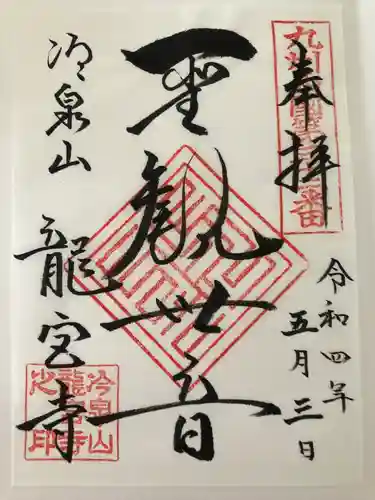 奉拝
令和四年
五月三日
聖観世音
冷泉山
龍宮寺
冷泉山
龍宮寺
之印